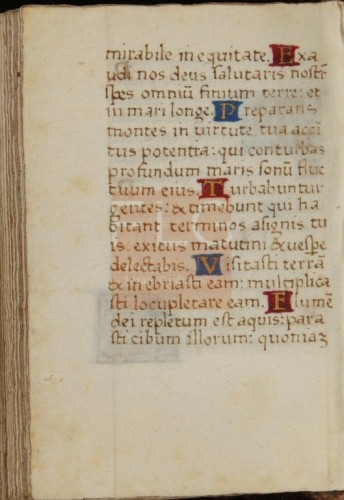 mirabile in equitate. Exa
udi nos deus salutaris nostr
spes omniū finium terre: et
in mari longe. Preparans
montes in virtute tua acci
tus potentia: qui conturbas
profundum maris sonū fluc
tuum eius. Turbabuntur
gentes: & timebunt qui ha
bitant terminos a signis tu
is: exitus matutini & vespe
delectabis. Visitasti terrā
& inebriasti eam: multiplica
sti locupletare eam. Flumē
dei repletum est aquis: para
sti cibum illorum: quoniaz